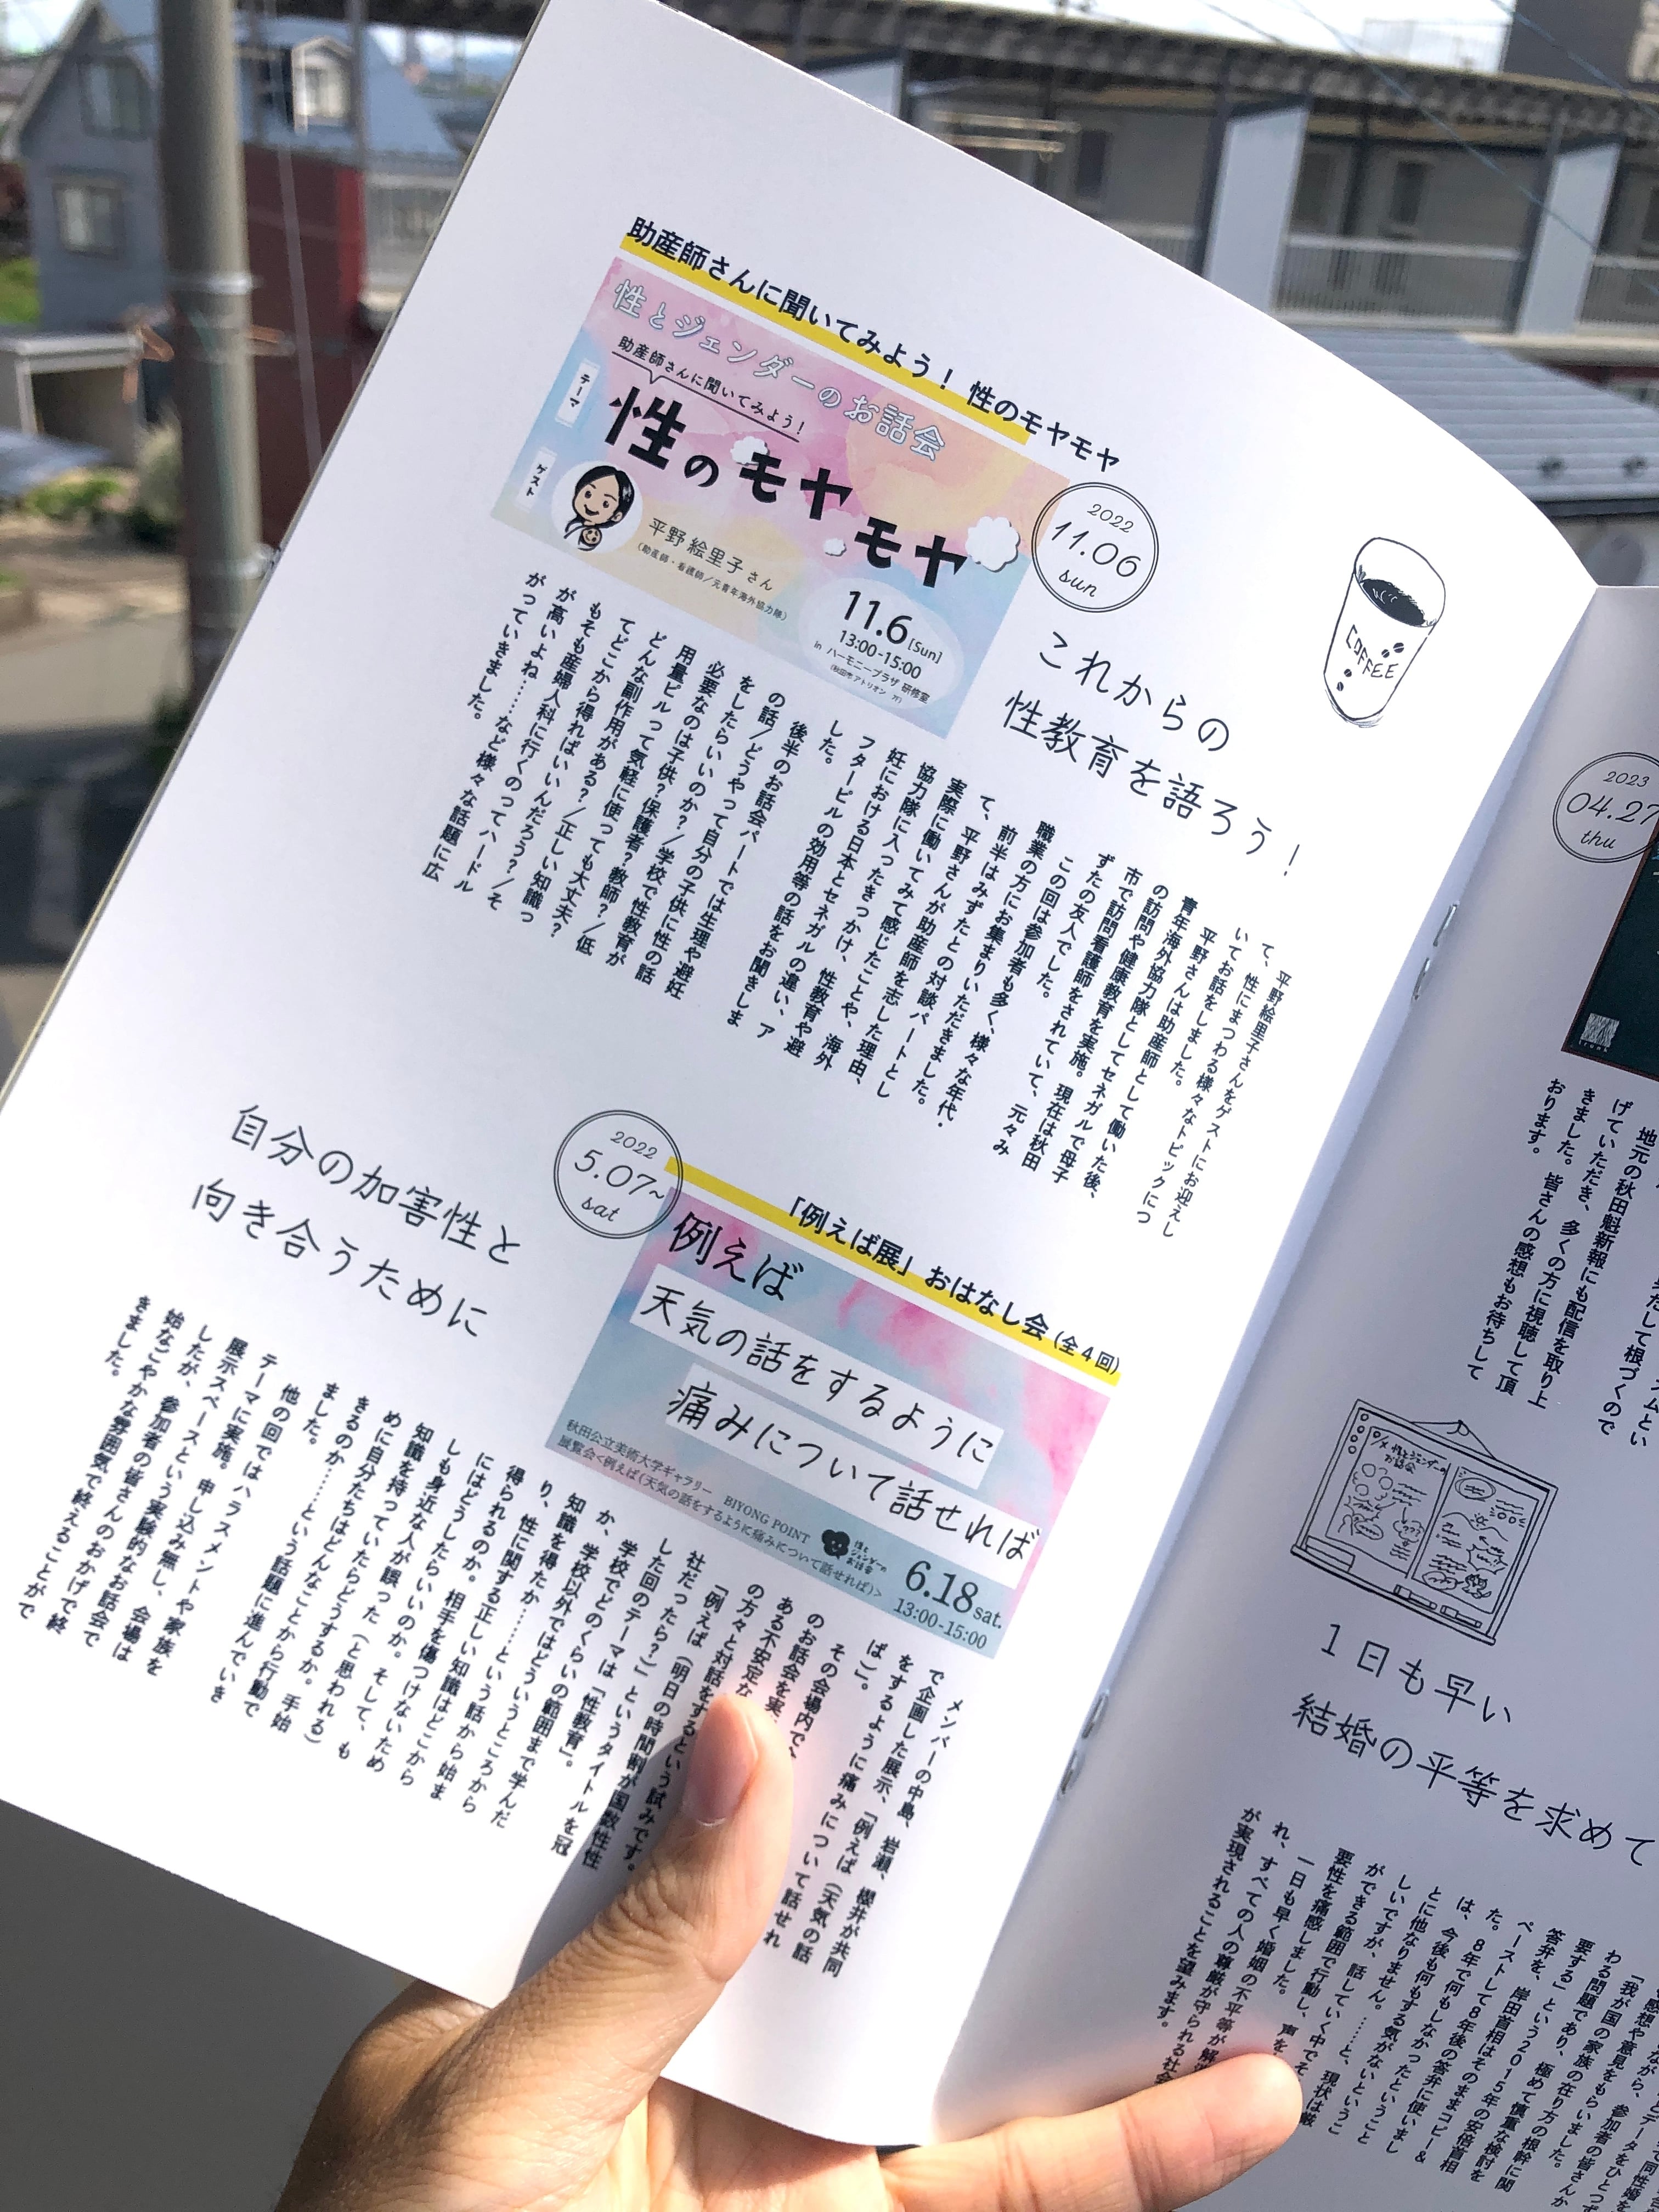 助産師さんに聞いてみよう！ 性のモヤモヤ
性とジェンダーのお話会
助産師さんに聞いてみよう！
テーマ
性のモヤモヤ
ゲスト
平野絵里子さん
（助産師・看護師／元青年海外協力隊）
11.6[Sun]
13:00-15:00
in ハーモニープラザ 研修室
（秋田市アトリオン 7F）
2022
11.06
sun
COFFEE
これからの
性教育を語ろう！
平野絵里子さんをゲストにお迎えし
て、性にまつわる様々なトピックにつ
いてお話をしました。
平野さんは助産師として働いた後、
青年海外協力隊としてセネガルで母子
の訪問や健康教育を実施。現在は秋田
市で訪問看護師をされていて、元々み
ずたの友人でした。
この回は参加者も多く、様々な年代・
職業の方にお集まりいただきました。
前半はみずたとの対談パートとし
て、平野さんが助産師を志した理由、
実際に働いてみて感じたことや、海外
協力隊に入ったきっかけ、性教育や避
妊における日本とセネガルの違い、ア
フターピルの効用等の話をお聞きしま
した。
後半のお話会パートでは生理や避妊
の話／どうやって自分の子供に性の話
をしたらいいのか？／学校で性教育が
必要なのは子供？保護者？教師？／低
用量ピルって気軽に使っても大丈夫？
どんな副作用がある？／正しい知識っ
てどこから得ればいいんだろう？／そ
もそも産婦人科に行くのってハードル
が高いよね……など様々な話題に広
がっていきました。
「例えば展」おはなし会（全４回）
2022
5.07~
sat
例えば
天気の話をするように
痛みについて話せれば
秋田公立美術大学ギャラリー BIYONG POINT
展覧会＜例えば（天気の話をするように痛みについて話せれば）＞
性と
ジェンダーの
お話会
6.18sat.
13:00-15:00
自分の加害性と
向き合うために
メンバーの中島、岩瀬、櫻井が共同
で企画した展示、「例えば（天気の話
をするように痛みについて話せれ
ば）」。
その会場内で
のお話会を実
ある不安定な
の方々と対話をするという試みです。
「例えば（明日の時間割が国数性性
社だったら？）」というタイトルを冠
した回のテーマは「性教育」。
学校でどのくらいの範囲まで学んだ
か、学校以外ではどういうところから
知識を得たか……という話から始ま
り、性に関する正しい知識はどこから
得られるのか。相手を傷つけないため
にはどうしたらいいのか。そして、も
しも身近な人が誤った（と思われる）
知識を持っていたらどうするか。手始
めに自分たちはどんなことから行動で
きるのか……という話題に進んでいき
ました。
他の回ではハラスメントや家族を
テーマに実施。申し込み無し、会場は
展示スペースという実験的なお話会で
したが、参加者の皆さんのおかげで終
始なごやかな雰囲気で終えることがで
きました。
2023
04.27
thu
地元の秋田魁新報にも配信を取り上
げていただき、多くの方に視聴して頂
きました。皆さんの感想もお待ちして
おります。
性とジェンダーの
お話会
１日も早い
結婚の平等を求めて
「我が国の家族の在り方の根幹に関
わる問題であり、極めて慎重な検討を
要する」という2015年の安倍首相
答弁を、岸田首相はそのままコピー＆
ペーストして8年後の答弁に使いまし
た。8年で何もしなかったということ
は、今後も何もする気がないというこ
とに他なりません。
しいですが、話していく中で
ができる範囲で行動し、
要性を痛感しました。
一日も早く婚姻の不平等が解
れ、すべての人の尊厳が守られる社会
が実現されることを望みます。